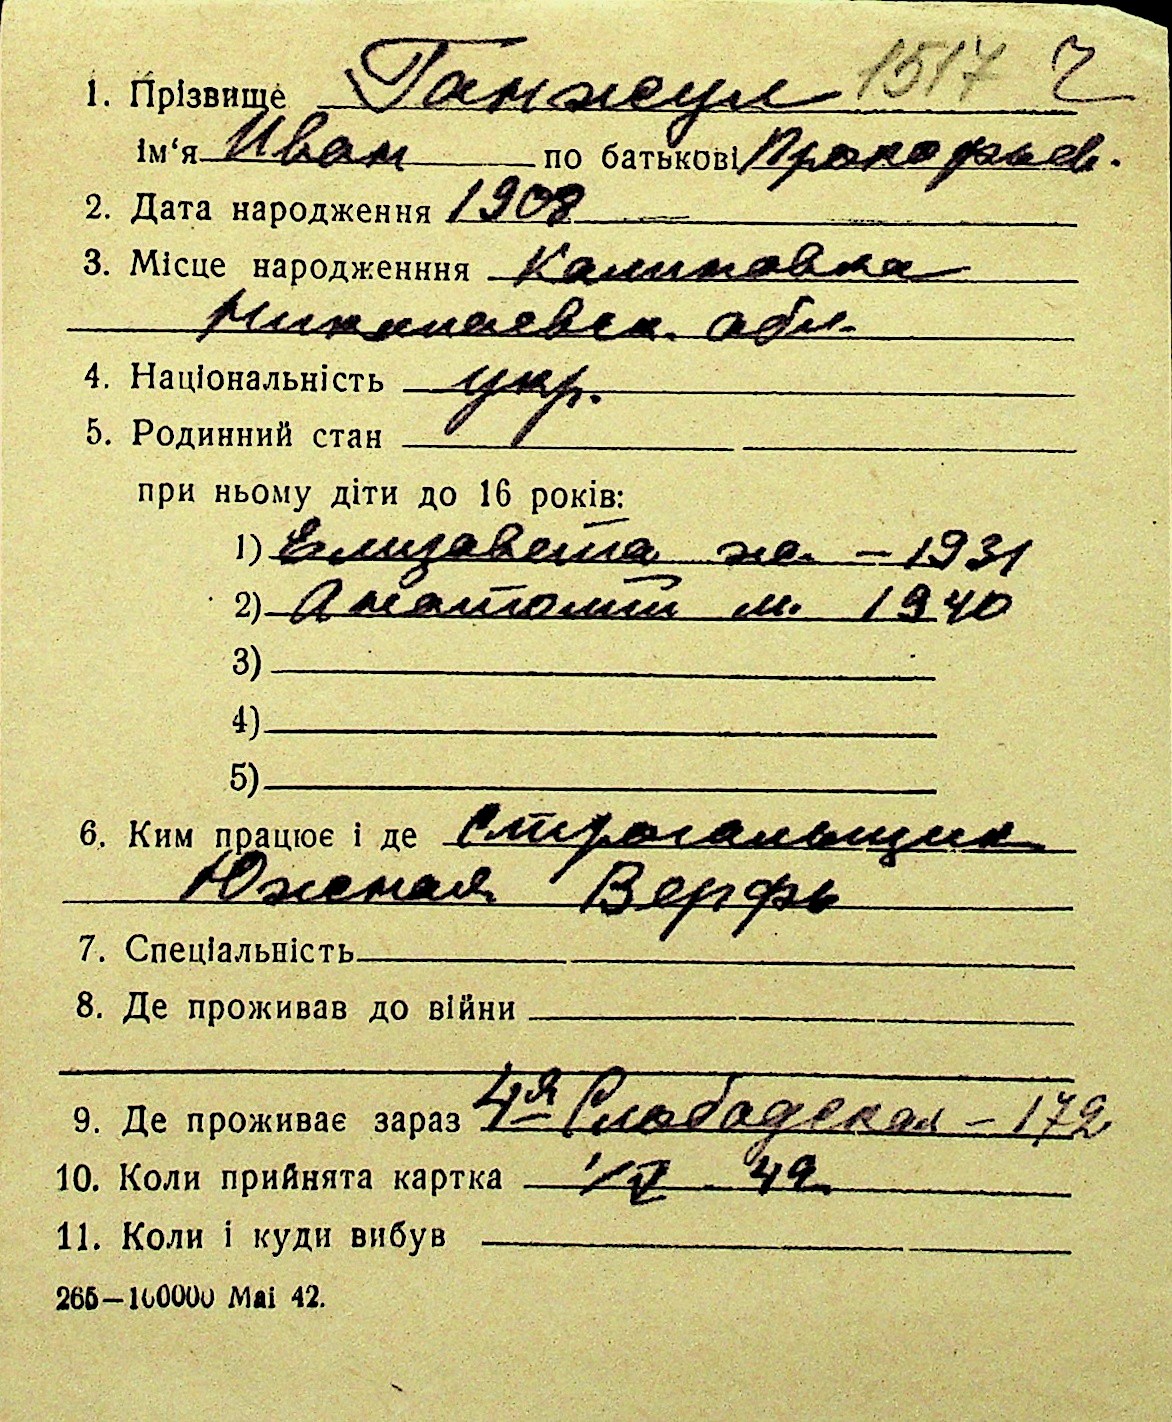 1. Прізвище Ганжул 1517
ім‘я Иван по батькові Прокофьев.
2. Дата народження 1908
3. Місце народженння Калиновка
Николаевск. обл.
4. Національність укр.
5. Родинний стан
при ньому діти до 16 років:
1) Елизавета ж. – 1931
2) Анатолий м. 1940
3)
4)
5)
6. Ким працює і де Строгальщик
Южная Верфь
7. Спеціальність
8. Де проживав до війни
9. Де проживає зараз 4я Слободская – 172
10. Коли прийнята картка
11. Коли і куди вибув
265—100000 Mai 42.